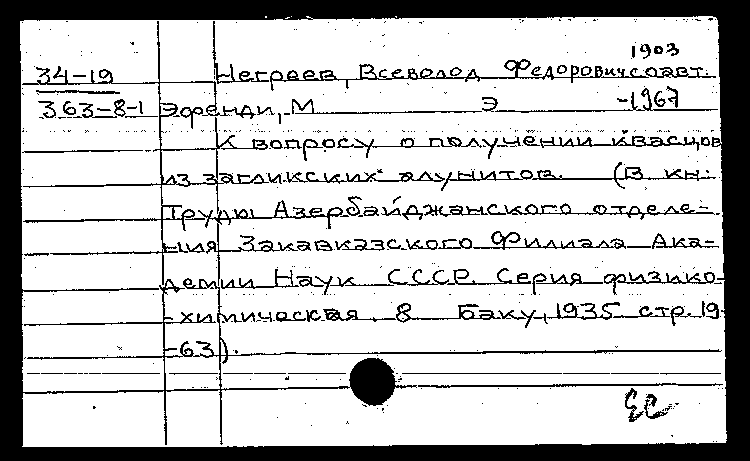 1903
34-19 Неграев, Всеволод Федорович соавт.
363-8-1 Эфенди, М Э -1967
К вопросу о получении квасцов
из загликских алунитов. (В кн:
Труды Азербайджанского отделе-
ния Закавказского Филиала Ака-
демии Наук СССР. Серия физико-
-химическая. 8 Баку, 1935 стр. 19
-63).
ЕС